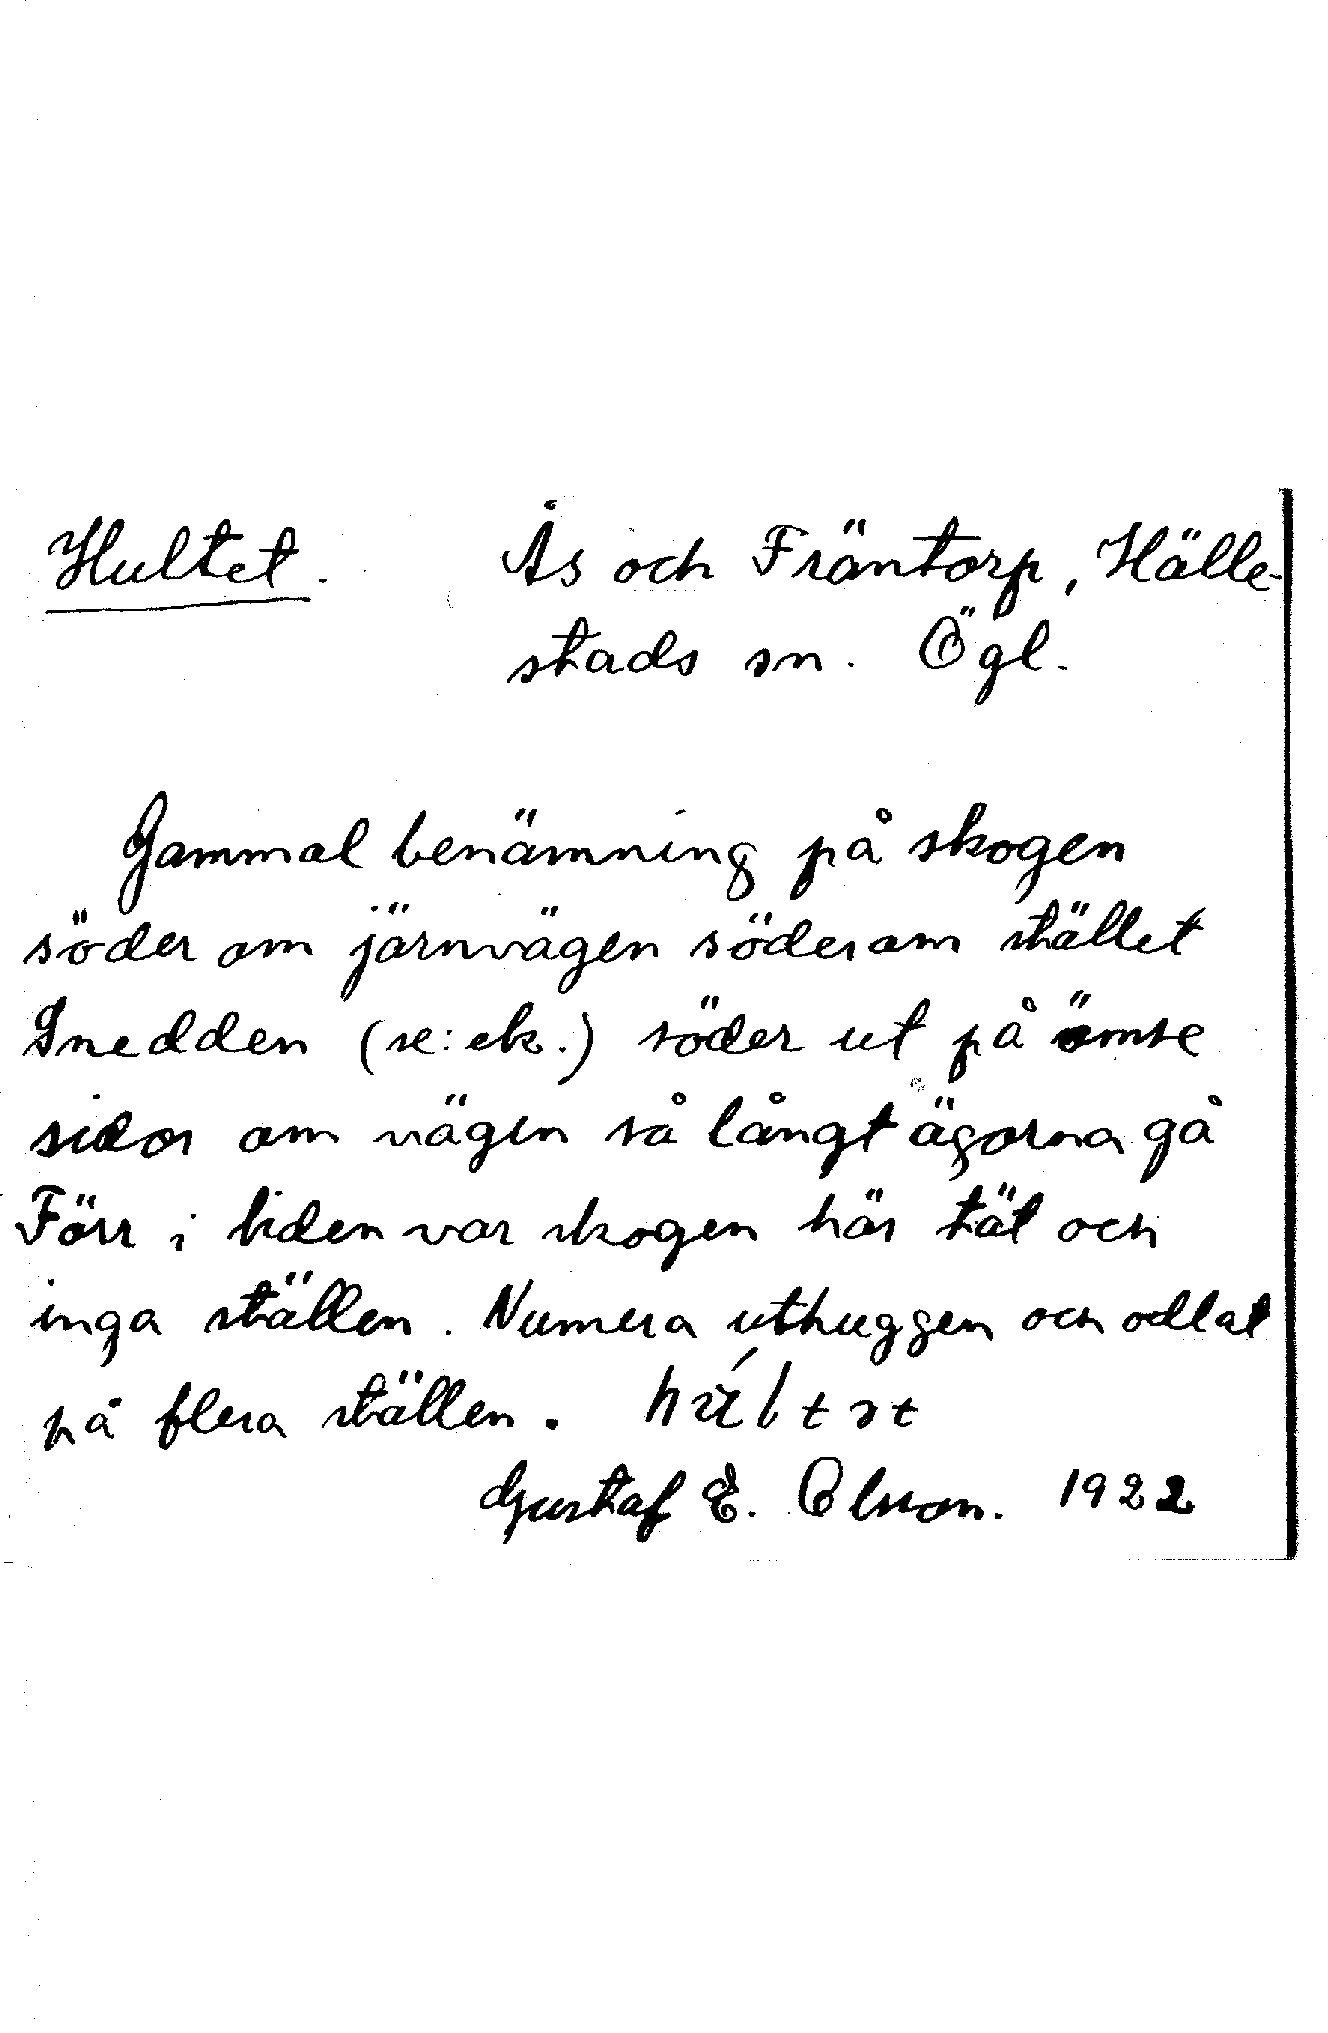 Hultet. Ås och Främtorp, Hälle-
stads sn. Ögl.
Gammal benämning på skogen
söder om järnvägen söder om stället
Snedden (se: ek.) söder ut på ömse
sidor om vägen så långt ägorna gå
Förr i tiden var skogen här tät och
inga ställen. Numera uthuggen och odlat
på flera ställen.
Gustaf E. Olsson. 1922